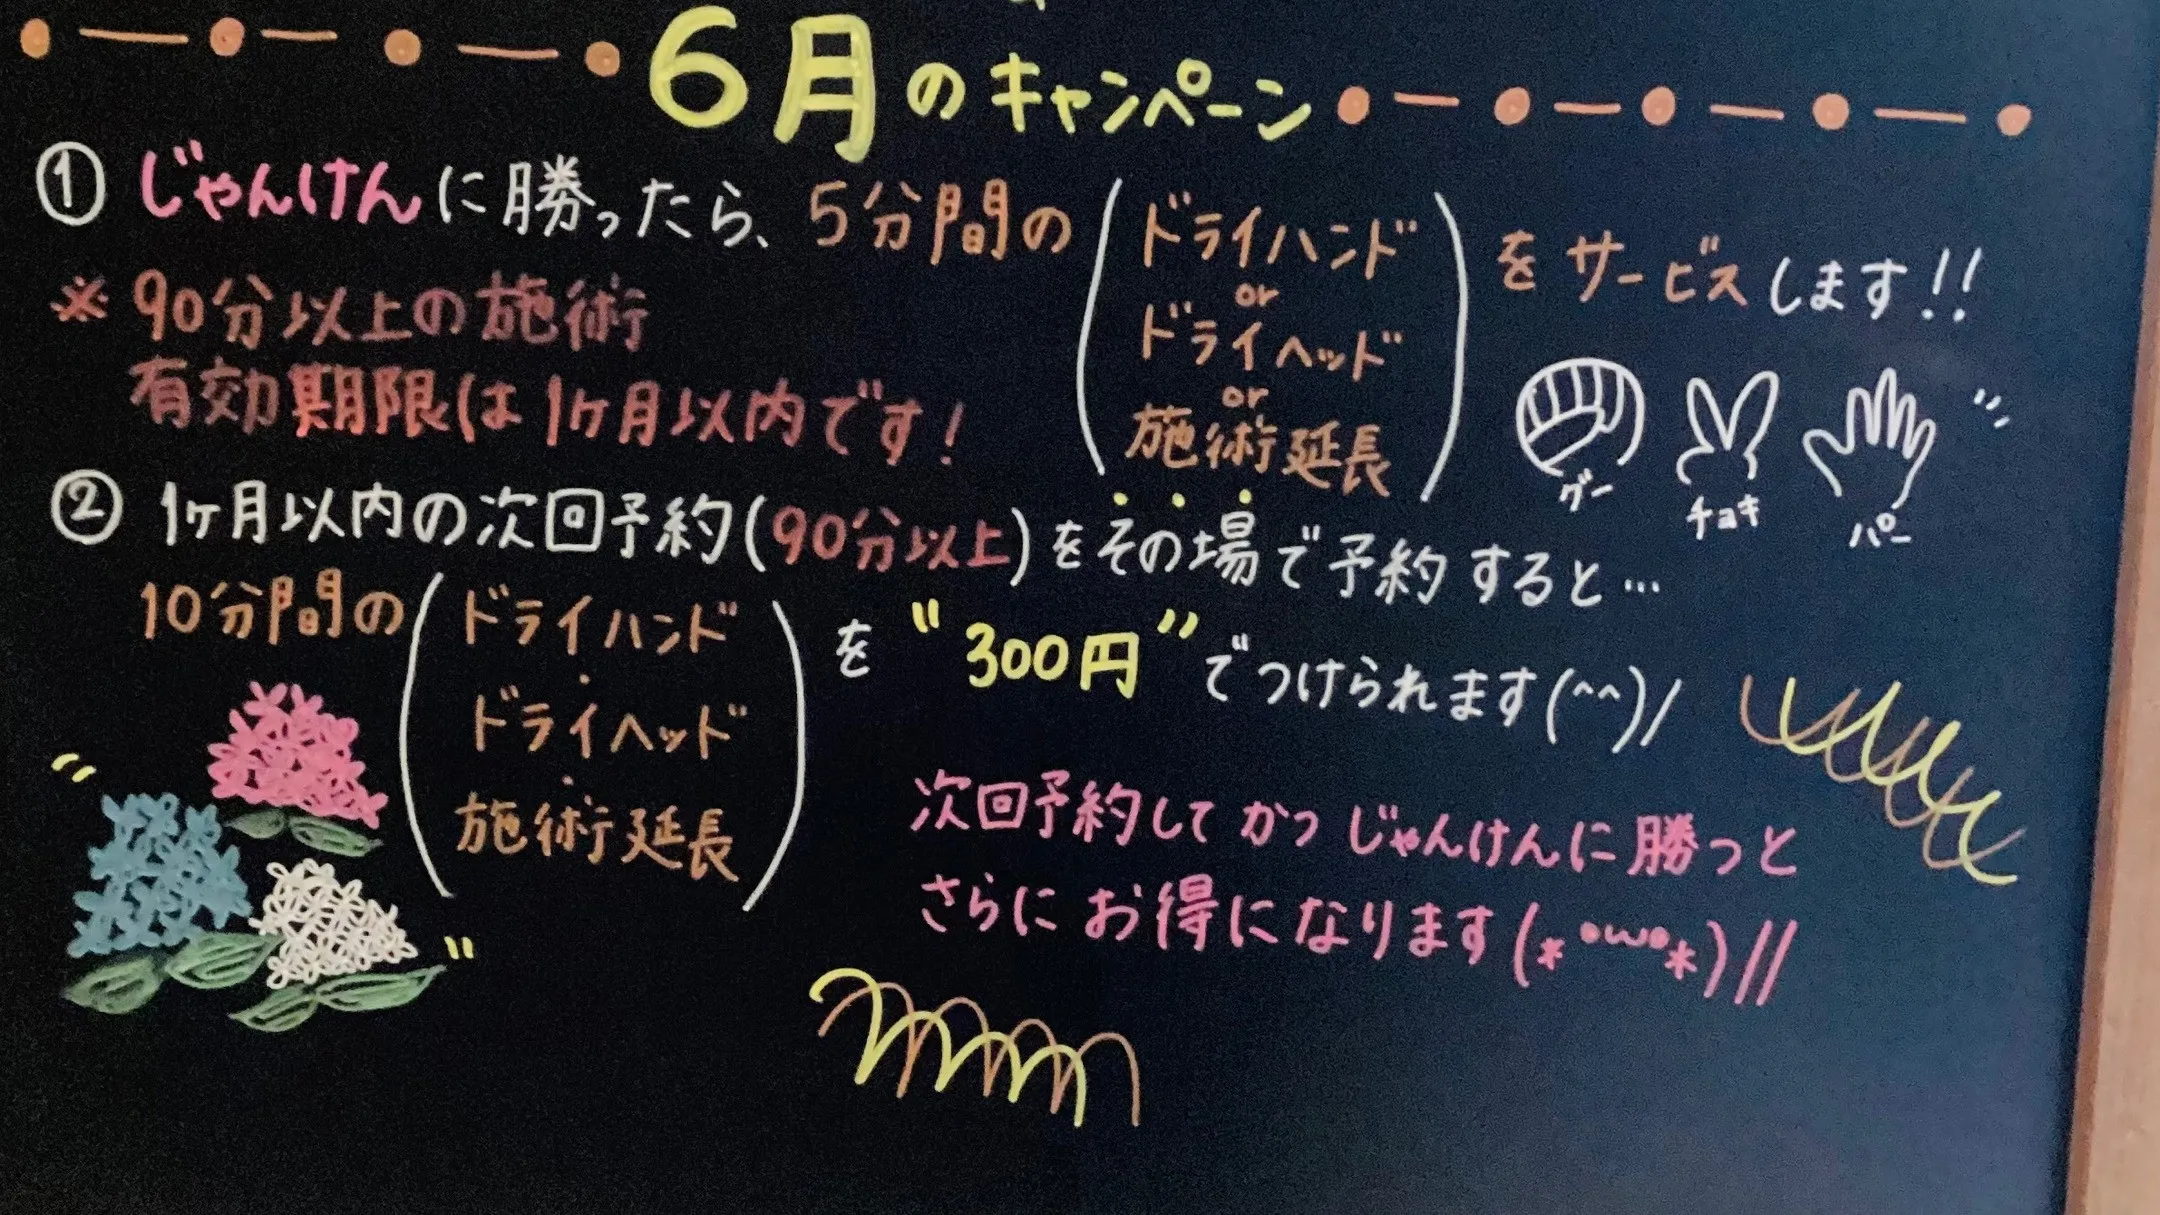 6月のキャンペーン
① じゃんけんに勝ったら、5分間の(ドライハンド or ドライヘッド or 施術延長)をサービスします!!
※90分以上の施術
有効期限は1ヶ月以内です!
グー チョキ パー
② 1ヶ月以内の次回予約(90分以上)をその場で予約すると…
10分間の(ドライハンド・ドライヘッド・施術延長)を"300円"でつけられます(^^)/
次回予約してかつじゃんけんに勝つと
さらにお得になります(*°ω°*)//